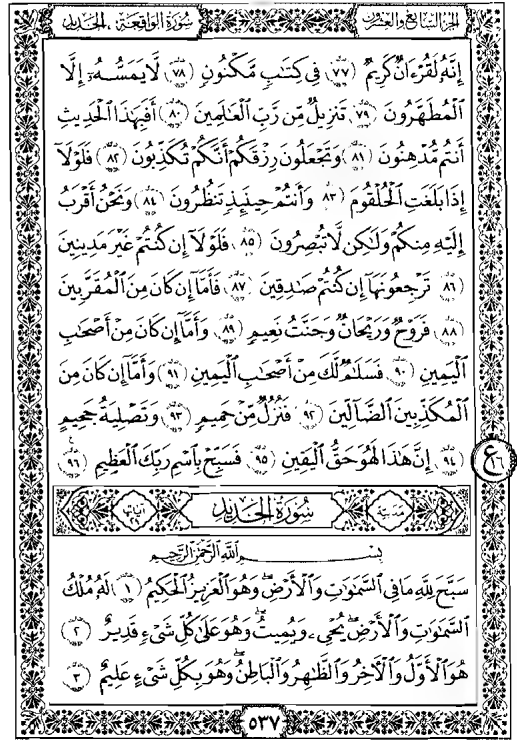 الجزء السابع والعشرون
سورة الواقعة ، الحديد
إِنَّهُۥ لَقُرْءَانٌ كَرِيمٌ (٧٧) فِى كِتَـٰبٍ مَّكْنُونٍ (٧٨) لَّا يَمَسُّهُۥٓ إِلَّا
ٱلْمُطَهَّرُونَ (٧٩) تَنزِيلٌ مِّن رَّبِّ ٱلْعَـٰلَمِينَ (٨٠) أَفَبِهَـٰذَا ٱلْحَدِيثِ
أَنتُم مُّدْهِنُونَ (٨١) وَتَجْعَلُونَ رِزْقَكُمْ أَنَّكُمْ تُكَذِّبُونَ (٨٢) فَلَوْلَآ
إِذَا بَلَغَتِ ٱلْحُلْقُومَ (٨٣) وَأَنتُمْ حِينَئِذٍ تَنظُرُونَ (٨٤) وَنَحْنُ أَقْرَبُ
إِلَيْهِ مِنكُمْ وَلَـٰكِن لَّا تُبْصِرُونَ (٨٥) فَلَوْلَآ إِن كُنتُمْ غَيْرَ مَدِينِينَ
(٨٦) تَرْجِعُونَهَآ إِن كُنتُمْ صَـٰدِقِينَ (٨٧) فَأَمَّآ إِن كَانَ مِنَ ٱلْمُقَرَّبِينَ
(٨٨) فَرَوْحٌ وَرَيْحَانٌ وَجَنَّتُ نَعِيمٍ (٨٩) وَأَمَّآ إِن كَانَ مِنْ أَصْحَـٰبِ
ٱلْيَمِينِ (٩٠) فَسَلَـٰمٌ لَّكَ مِنْ أَصْحَـٰبِ ٱلْيَمِينِ (٩١) وَأَمَّآ إِن كَانَ مِنَ
ٱلْمُكَذِّبِينَ ٱلضَّآلِّينَ (٩٢) فَنُزُلٌ مِّنْ حَمِيمٍ (٩٣) وَتَصْلِيَةُ جَحِيمٍ
(٩٤) إِنَّ هَـٰذَا لَهُوَ حَقُّ ٱلْيَقِينِ (٩٥) فَسَبِّحْ بِٱسْمِ رَبِّكَ ٱلْعَظِيمِ (٩٦)
ع ١٦
مدنية سورة الحديد آياتها ٢٩
بِسْمِ ٱللَّهِ ٱلرَّحْمَـٰنِ ٱلرَّحِيمِ
سَبَّحَ لِلَّهِ مَا فِى ٱلسَّمَـٰوَٰتِ وَٱلْأَرْضِ ۖ وَهُوَ ٱلْعَزِيزُ ٱلْحَكِيمُ (١) لَهُۥ مُلْكُ
ٱلسَّمَـٰوَٰتِ وَٱلْأَرْضِ ۖ يُحْىِۦ وَيُمِيتُ ۖ وَهُوَ عَلَىٰ كُلِّ شَىْءٍ قَدِيرٌ (٢)
هُوَ ٱلْأَوَّلُ وَٱلْـَٔاخِرُ وَٱلظَّـٰهِرُ وَٱلْبَاطِنُ ۖ وَهُوَ بِكُلِّ شَىْءٍ عَلِيمٌ (٣)
٥٣٧